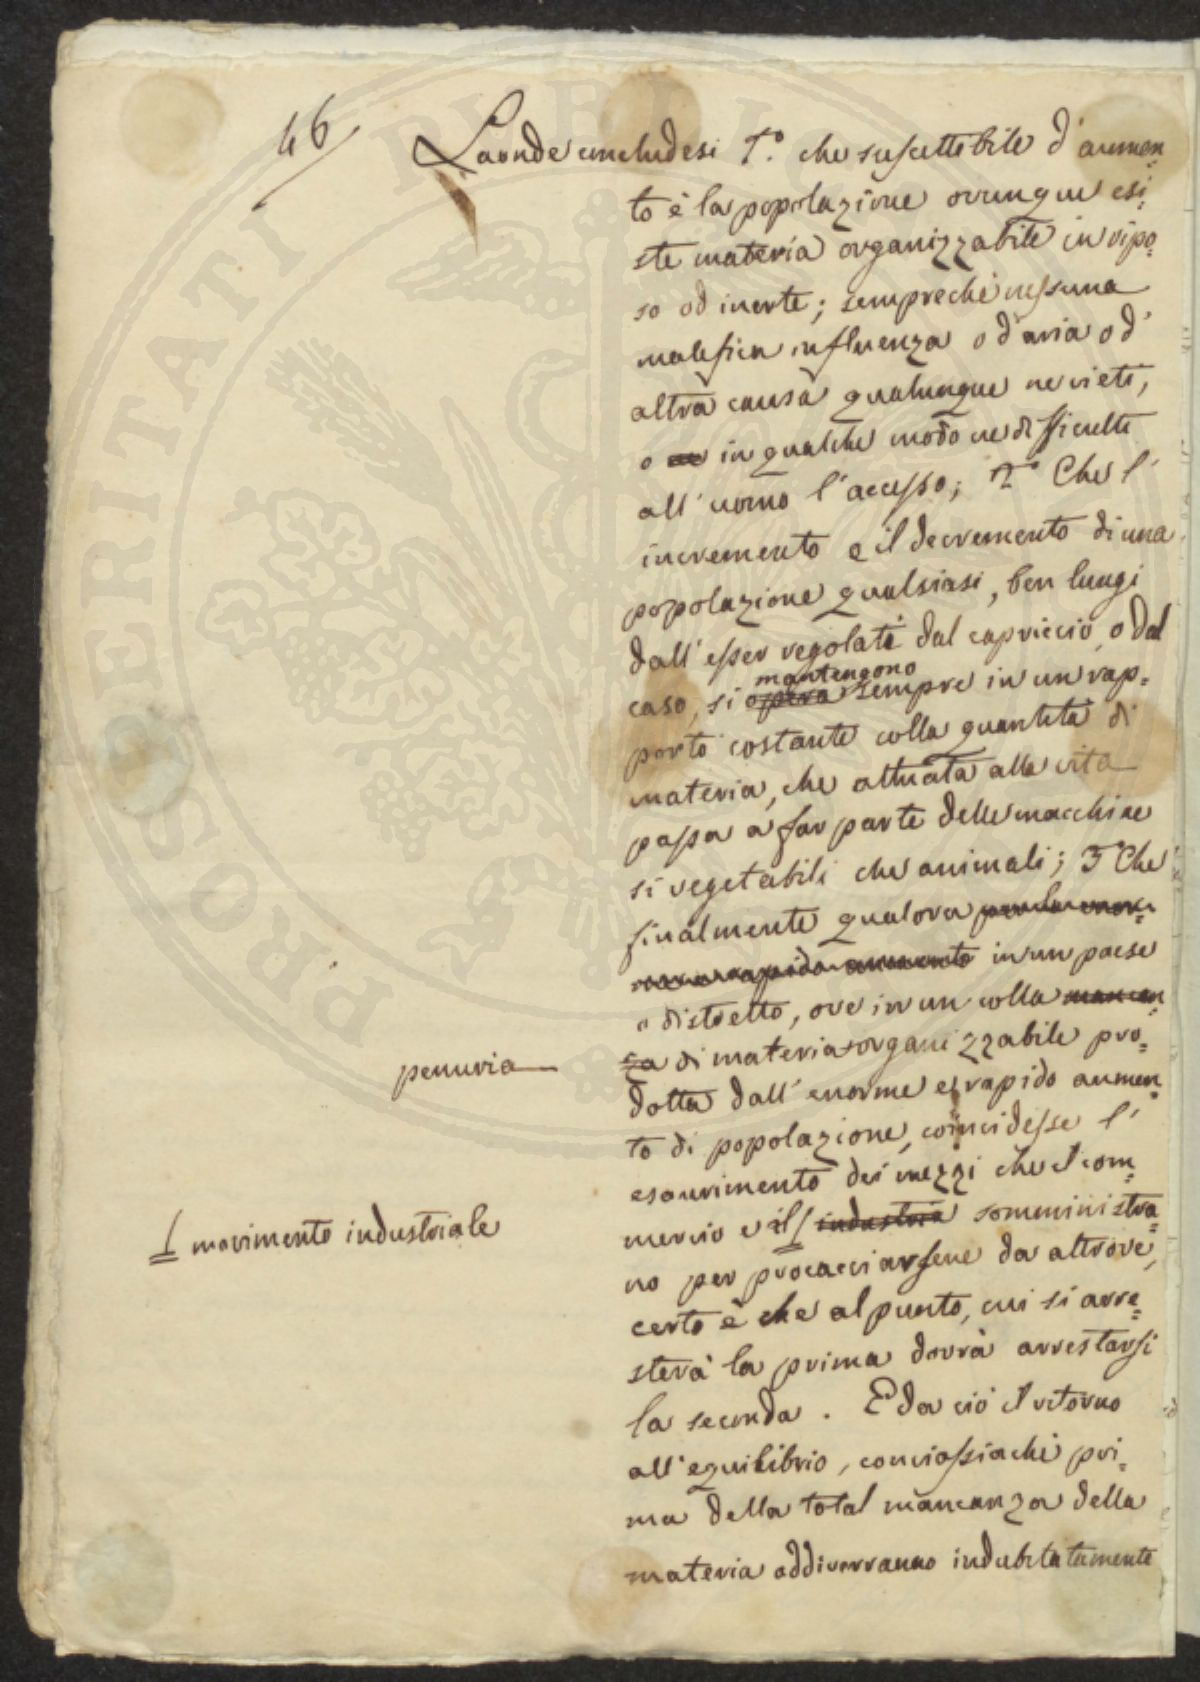 46
Laonde concludesi 1.° che suscettibile d'aumen=
to è la popolazione ovunque esi=
ste materia organizzabile in ripo=
so od inerte; sempreché nessuna
malefica influenza o d'aria o d'
altra causa qualunque ne vieti,
o ne in qualche modo ne difficulti
all'uomo l'accesso; 2° Che l'
incremento e il decremento di una
popolazione qualsiasi, ben lungi
dall'esser regolati dal capriccio, o dal
mantengono
caso, si opera sempre in un rap=
porto costante colla quantità di
materia, che attuata alla vita
passa a far parte delle macchine
sì vegetabili che animali; 3° Che
finalmente qualora
rapido aumento in un paese
o distretto, ove in un colla mancan
penuria
za di materia organizzabile pro=
dotta dall'enorme e rapido aumen=
to di popolazione, coincidesse l'
esaurimento dei mezzi che il com=
mercio e il industria somministra=
movimento industriale
no per procacciarsene da altrove,
certo è che al punto, cui si arre=
sterà la prima dovrà arrestarsi
la seconda. E da ciò il ritorno
all'equilibrio, conciossiaché pri=
ma della total mancanza della
materia addiverranno indubitatamente
PROSPERITATI PUBLICAE